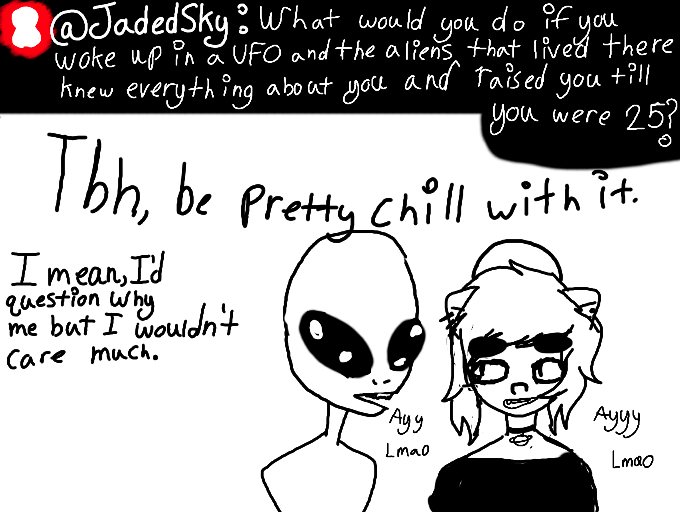 @JadedSky: What would you do if you
woke up in a UFO and the aliens that lived there
knew everything about you and raised you till
you were 25?
Tbh, be pretty chill with it.
I mean, I'd
question why
me but I wouldn't
care much.
Ayy
Lmao
Ayyy
Lmao